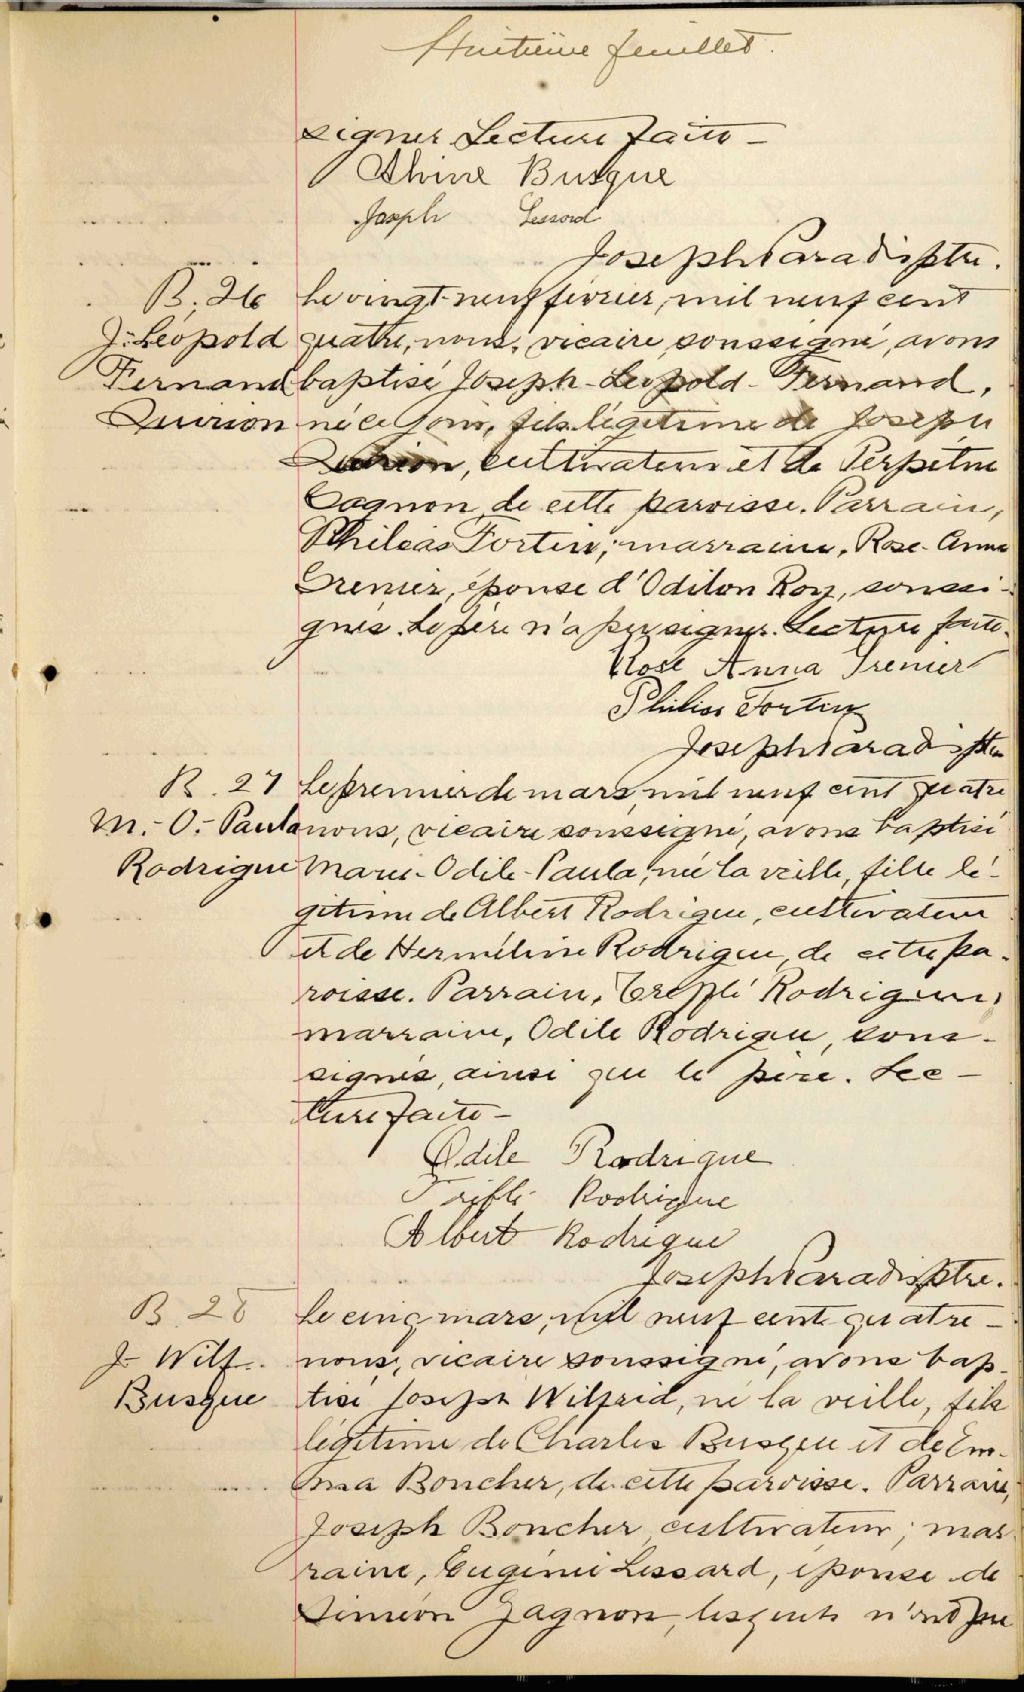 Huitième feuillet.
signer. Lecture faite -
Alvine Busque
Joseph Lessard
Joseph Paradis ptre.
B. 26
J.-Léopold
Fernand
Quirion
Le vingt-neuf février, mil neuf cent
quatre, nous, vicaire soussigné, avons
baptisé Joseph-Léopold-Fernand,
né ce jour, fils légitime de Joseph
Quirion, cultivateur et de Perpétue
Gagnon de cette paroisse. Parrain,
Philéas Fortin; marraine, Rose-Anna
Grenier, épouse d'Odilon Roy, soussi-
gnés. Le père n'a pu signer. Lecture faite.
Rose Anna Grenier
Philias Fortin
Joseph Paradis ptre
B. 27
M.-O.-Paula
Rodrigue
Le premier de mars, mil neuf cent quatre
nous, vicaire soussigné, avons baptisé
Marie-Odile-Paula, née la veille, fille lé-
gitime de Albert Rodrigue, cultivateur
et de Herméline Rodrigue, de cette pa-
roisse. Parrain, Trefflé Rodrigue,
marraine, Odile Rodrigue, sous-
signés, ainsi que le père. Lec-
ture faite -
Odile Rodrigue
Trifflé Rodrigue
Albert Rodrigue
Joseph Paradis ptre.
B. 28
J- Wilf.
Busque
Le cinq mars, mil neuf cent quatre -
nous, vicaire soussigné, avons bap-
tisé Joseph Wilfrid, né la veille, fils
légitime de Charles Busque et de Em-
ma Boucher, de cette paroisse. Parrain,
Joseph Boucher, cultivateur; mar-
raine, Eugénie Lessard, épouse de
Siméon Gagnon, lesquels n'ont pu